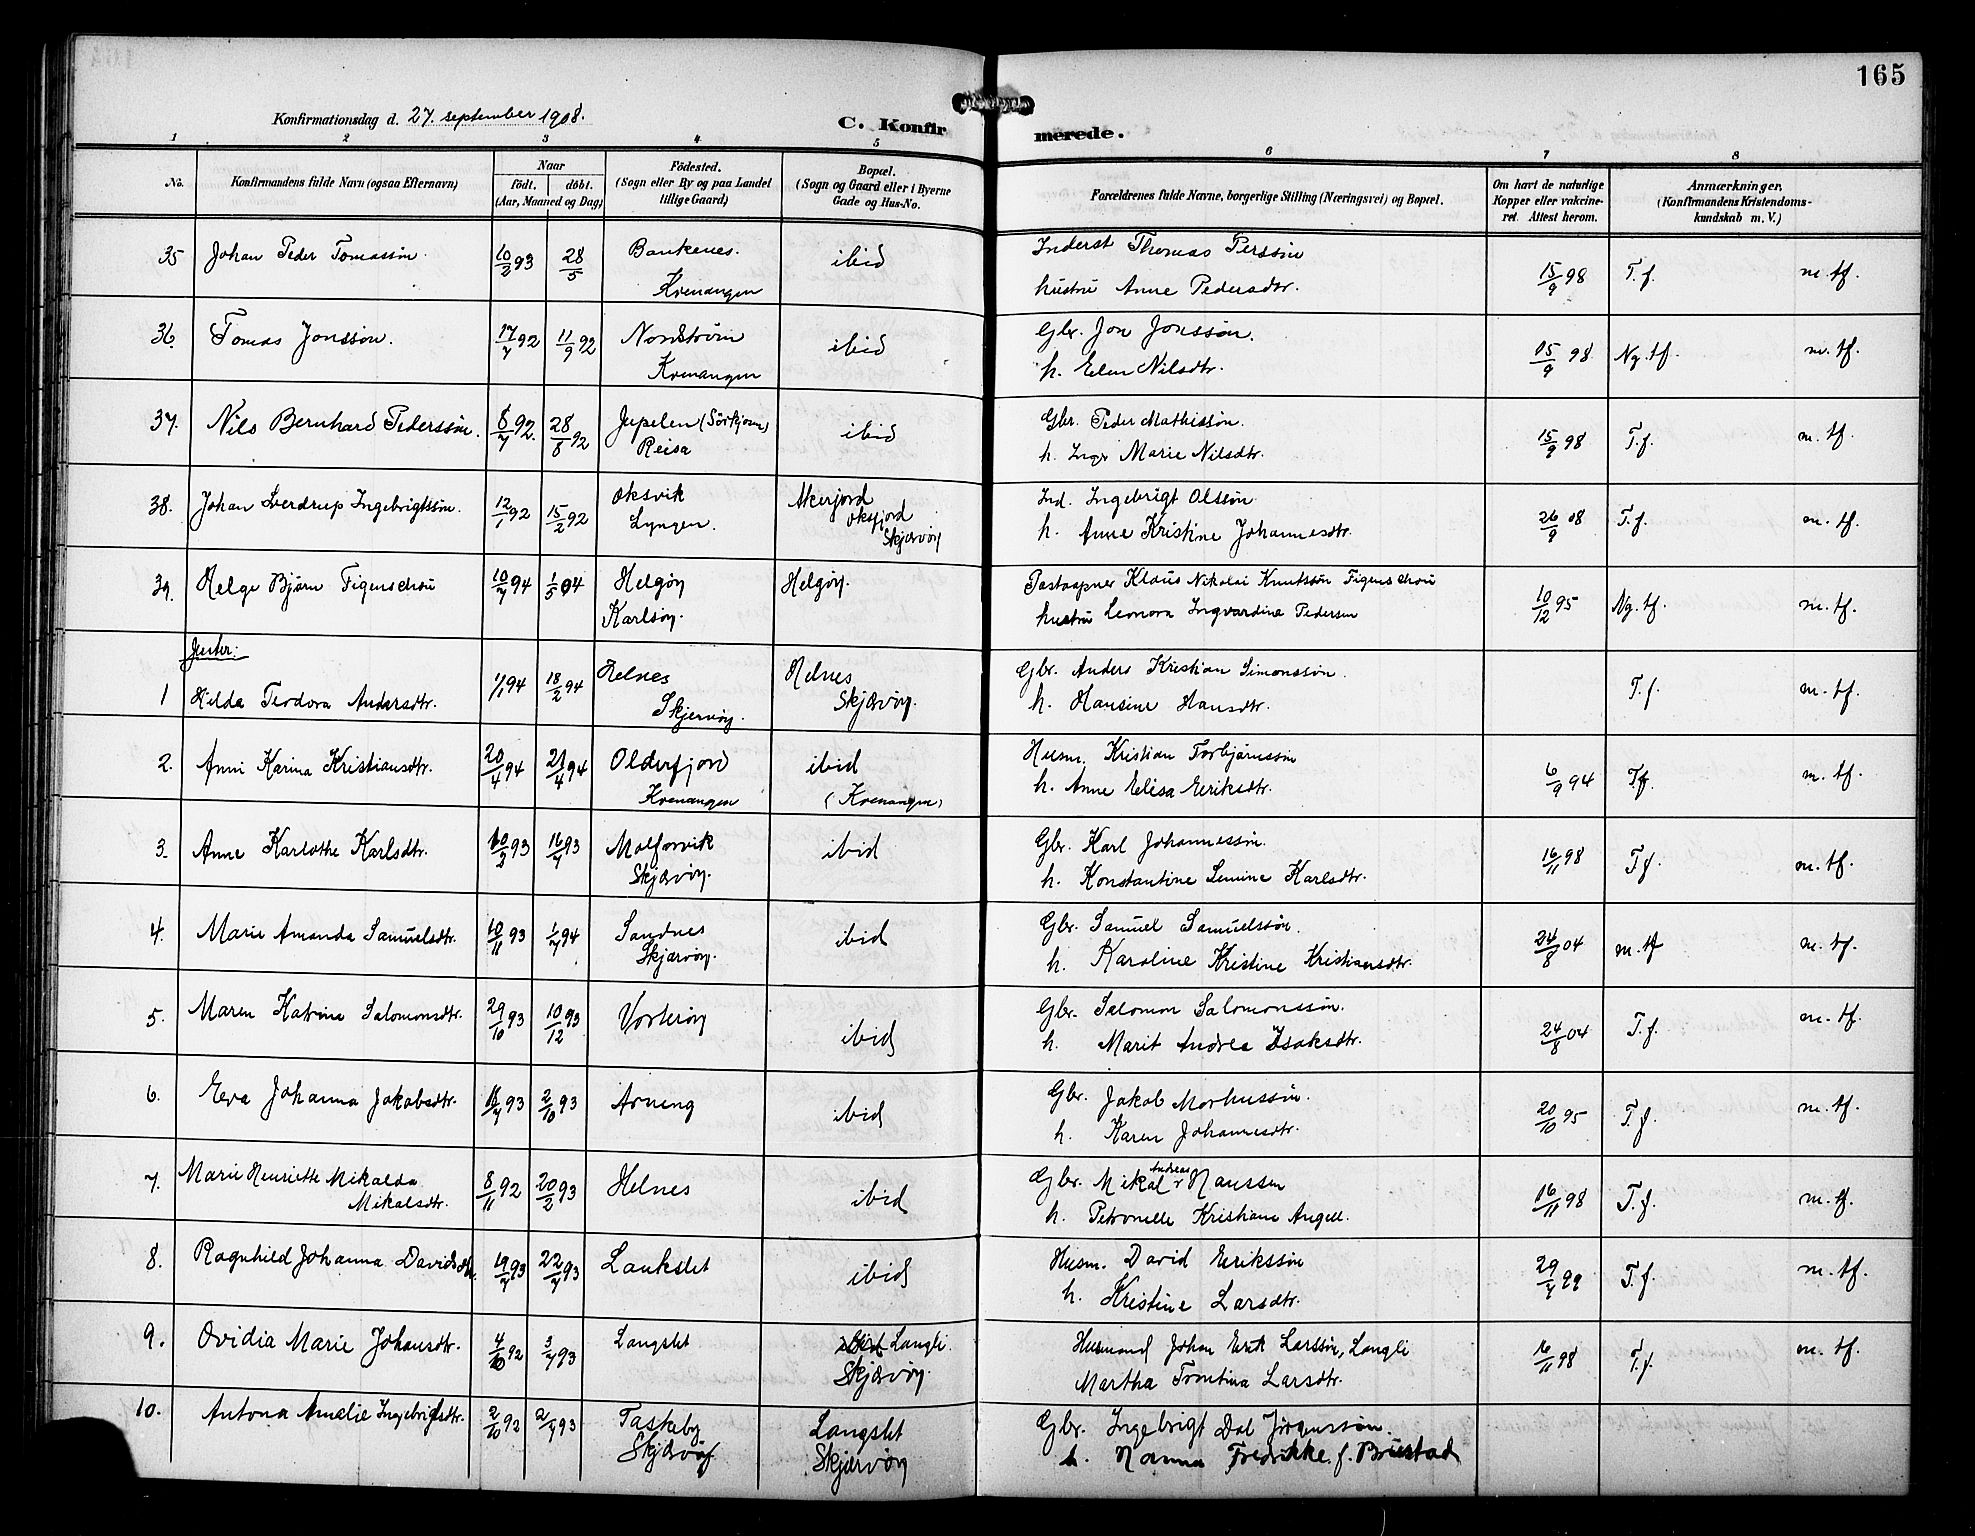 165
Konfirmationsdag d. 27. september 1908.
C. Konfirmerede.
1 2 3 4 5 6 7 8
No.
Konfirmandens fulde Navn (ogsaa Efternavn)
Naar
født. døbt.
(Aar, Maaned og Dag)
Födested.
(Sogn eller By og paa Landet
tillige Gaard)
Bopæl.
(Sogn og Gaard eller i Byerne
Gade og Hus-No.
Forældrenes fulde Navne, borgerlige Stilling (Næringsvei) og Bopæl.
Om havt de naturlige
Kopper eller vakcine-
ret. Attest herom.
Anmærkninger.
(Konfirmandens Kristendoms-
kundskab m. V.)
35 Johan Peder Tomassøn. 10/2 93 28/5 Bankenes. ibid Inderst Thomas Perssøn
Kvenangen hustru Anne Pedersdtr. 15/9 98 T.f. m. tf.
36. Tomas Jonssøn. 17/7 92 11/9 92 ibid Gbr. Jon Jonssøn.
Kvenangen h. Elen Nilsdtr. 15/9 98 Ng. tf. m. tf.
37. Nils Bernhard Pederssøn. 8/7 92. 28/8 92 Jupelen (Sörkjosen) ibid Gbr. Peder Mathissøn.
Reisa h. Inger Marie Nilsdtr. 15/9 98 T.f. m. tf.
38. Johan Sverdrup Ingebrigtssøn. 12/1 92 15/2 92 Oksvik Akerjord Ind. Ingebrigt Olssøn
Lyngen. Oksfjord h. Anne Kristine Johannesdtr. 26/9 08 T.f. m. tf.
Skjærvöy
39. Helge Bjørn Figenschou 10/7 94 1/5 04 Helgöy Helgöy. Postaapner Klaus Nikolai Knutssøn Figenschou
Karlsöy. hustru Leonora Ingvardina Pedersen 10/12 95 Ng. tf. m. tf.
Jenter:
1 Hilda Teodora Andersdtr. 1/1 94 18/2 94 Helnes Helnes Gbr. Anders Kristian Simonssøn.
Skjervöy. Skjærvöy. h. Hansine Hansdtr. T.f. m. tf.
2. Anni Karina Kristiansdtr. 20/4 94 21/4 94 Olderfjord ibid Husm. Kristian Torbjørnssøn
Kvenangen (Kvenangen) h. Anne Elisa Eeriksdtr. 6/9 94 Tf. m. tf.
3. Anne Karlothe Karlsdtr. 10/3 93 16/7 93 Molforvik ibid Gbr. Karl Johannessøn.
Skjærvöy. h. Konstantine Lemine Karlsdtr. 16/11 98 Tf. m. tf.
4. Marie Amanda Samuelsdtr. 10/11 93 1/7 94 Sandnes ibid Gbr. Samuel Samuelssøn.
Skjærvöy. h. Karoline Kristine Kristiansdtr. 24/8 04 m. tf m. tf.
5. Maren Katrine Salomonsdtr. 29/10 93 10/12 93 Vorteröy ibid Gbr. Salomon Salomonssøn.
h. Marit Andrea Isaksdtr. 24/8 04 T.f. m. tf.
6. Eeva Johanna Jakobsdtr. 93 2/10 93 Arneng ibid Gbr. Jakob Markussøn.
h. Karen Johannesdtr. 20/10 95 T.f. m. tf.
7. Marie Henriette Mikalda 8/11 92 20/2 93 Helnes ibid Gbr. Mikal Andreas Hanssen
Mikalsdtr. h. Petronelle Kristiane Angell. 16/11 98 T.f. m. tf.
8. Ragnhild Johanna Davidsdtr. 19/7 93 22/7 93 Laukslet ibid Husm. David Eerikssøn
h. Kristine Larsdtr. 29/7 99 T.f. m. tf.
9. Ovidia Marie Johansdtr. 4/10 92 3/7 93 Langslet Langli. Husmand Johan Erik Larssøn, Langli
Skjærvöy. Martha Tomtina Larsdtr. 16/11 98 T.f. m. tf.
10. Antona Amalie Ingebrigtsdtr. 2/10 92 2/7 93 Taskeby Langslet Gbr. Ingebrigt Dal Jörgenssøn.
Skjærvöy Skjærvöy h. Hanna Fredrikke f. Brustad